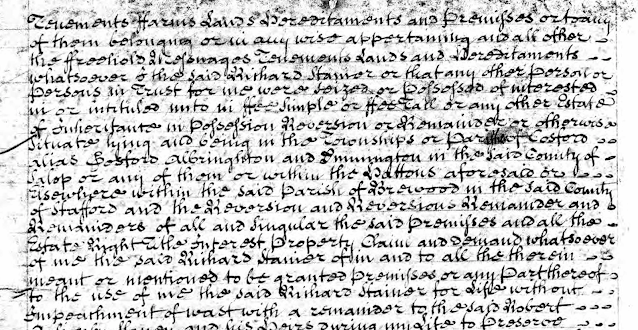 Tenements ffarms Lands Hereditaments and Premisses or to any
of them belonging or in any wise appertaining and all other
the ffreehold Messuages Tenements Lands and Hereditaments
whatsoever I the said Richard Stanier or that any other Person or
Persons in Trust for me were Seized or Possessed of interested
in or intituled unto in ffee simple or ffee Tail or any other Estate
of Inheritance in Possession Reversion or Remainder or otherwise
Situate lying and being in the Townships or of Cosford
alias Gosford Albrighton and in the said County of
Salop or any of them or within the aforesaid or
Elsewhere within the said Parish of Brewood in the said County
of Stafford and the Reversion and Reversions Remainder and
Remainders of all and Singular the said Premisses and all the
Estate Right Title Interest Property Claim and demand whatsoever
of me the said Richard Stanier of in and to all the therein
meant or mentioned to be granted Premisses or any Part thereof
to the use of me the said Richard Stanier for Life without
Impeachment of wast with a remainder to the said Robert
and his Heirs during my Life to Preserve